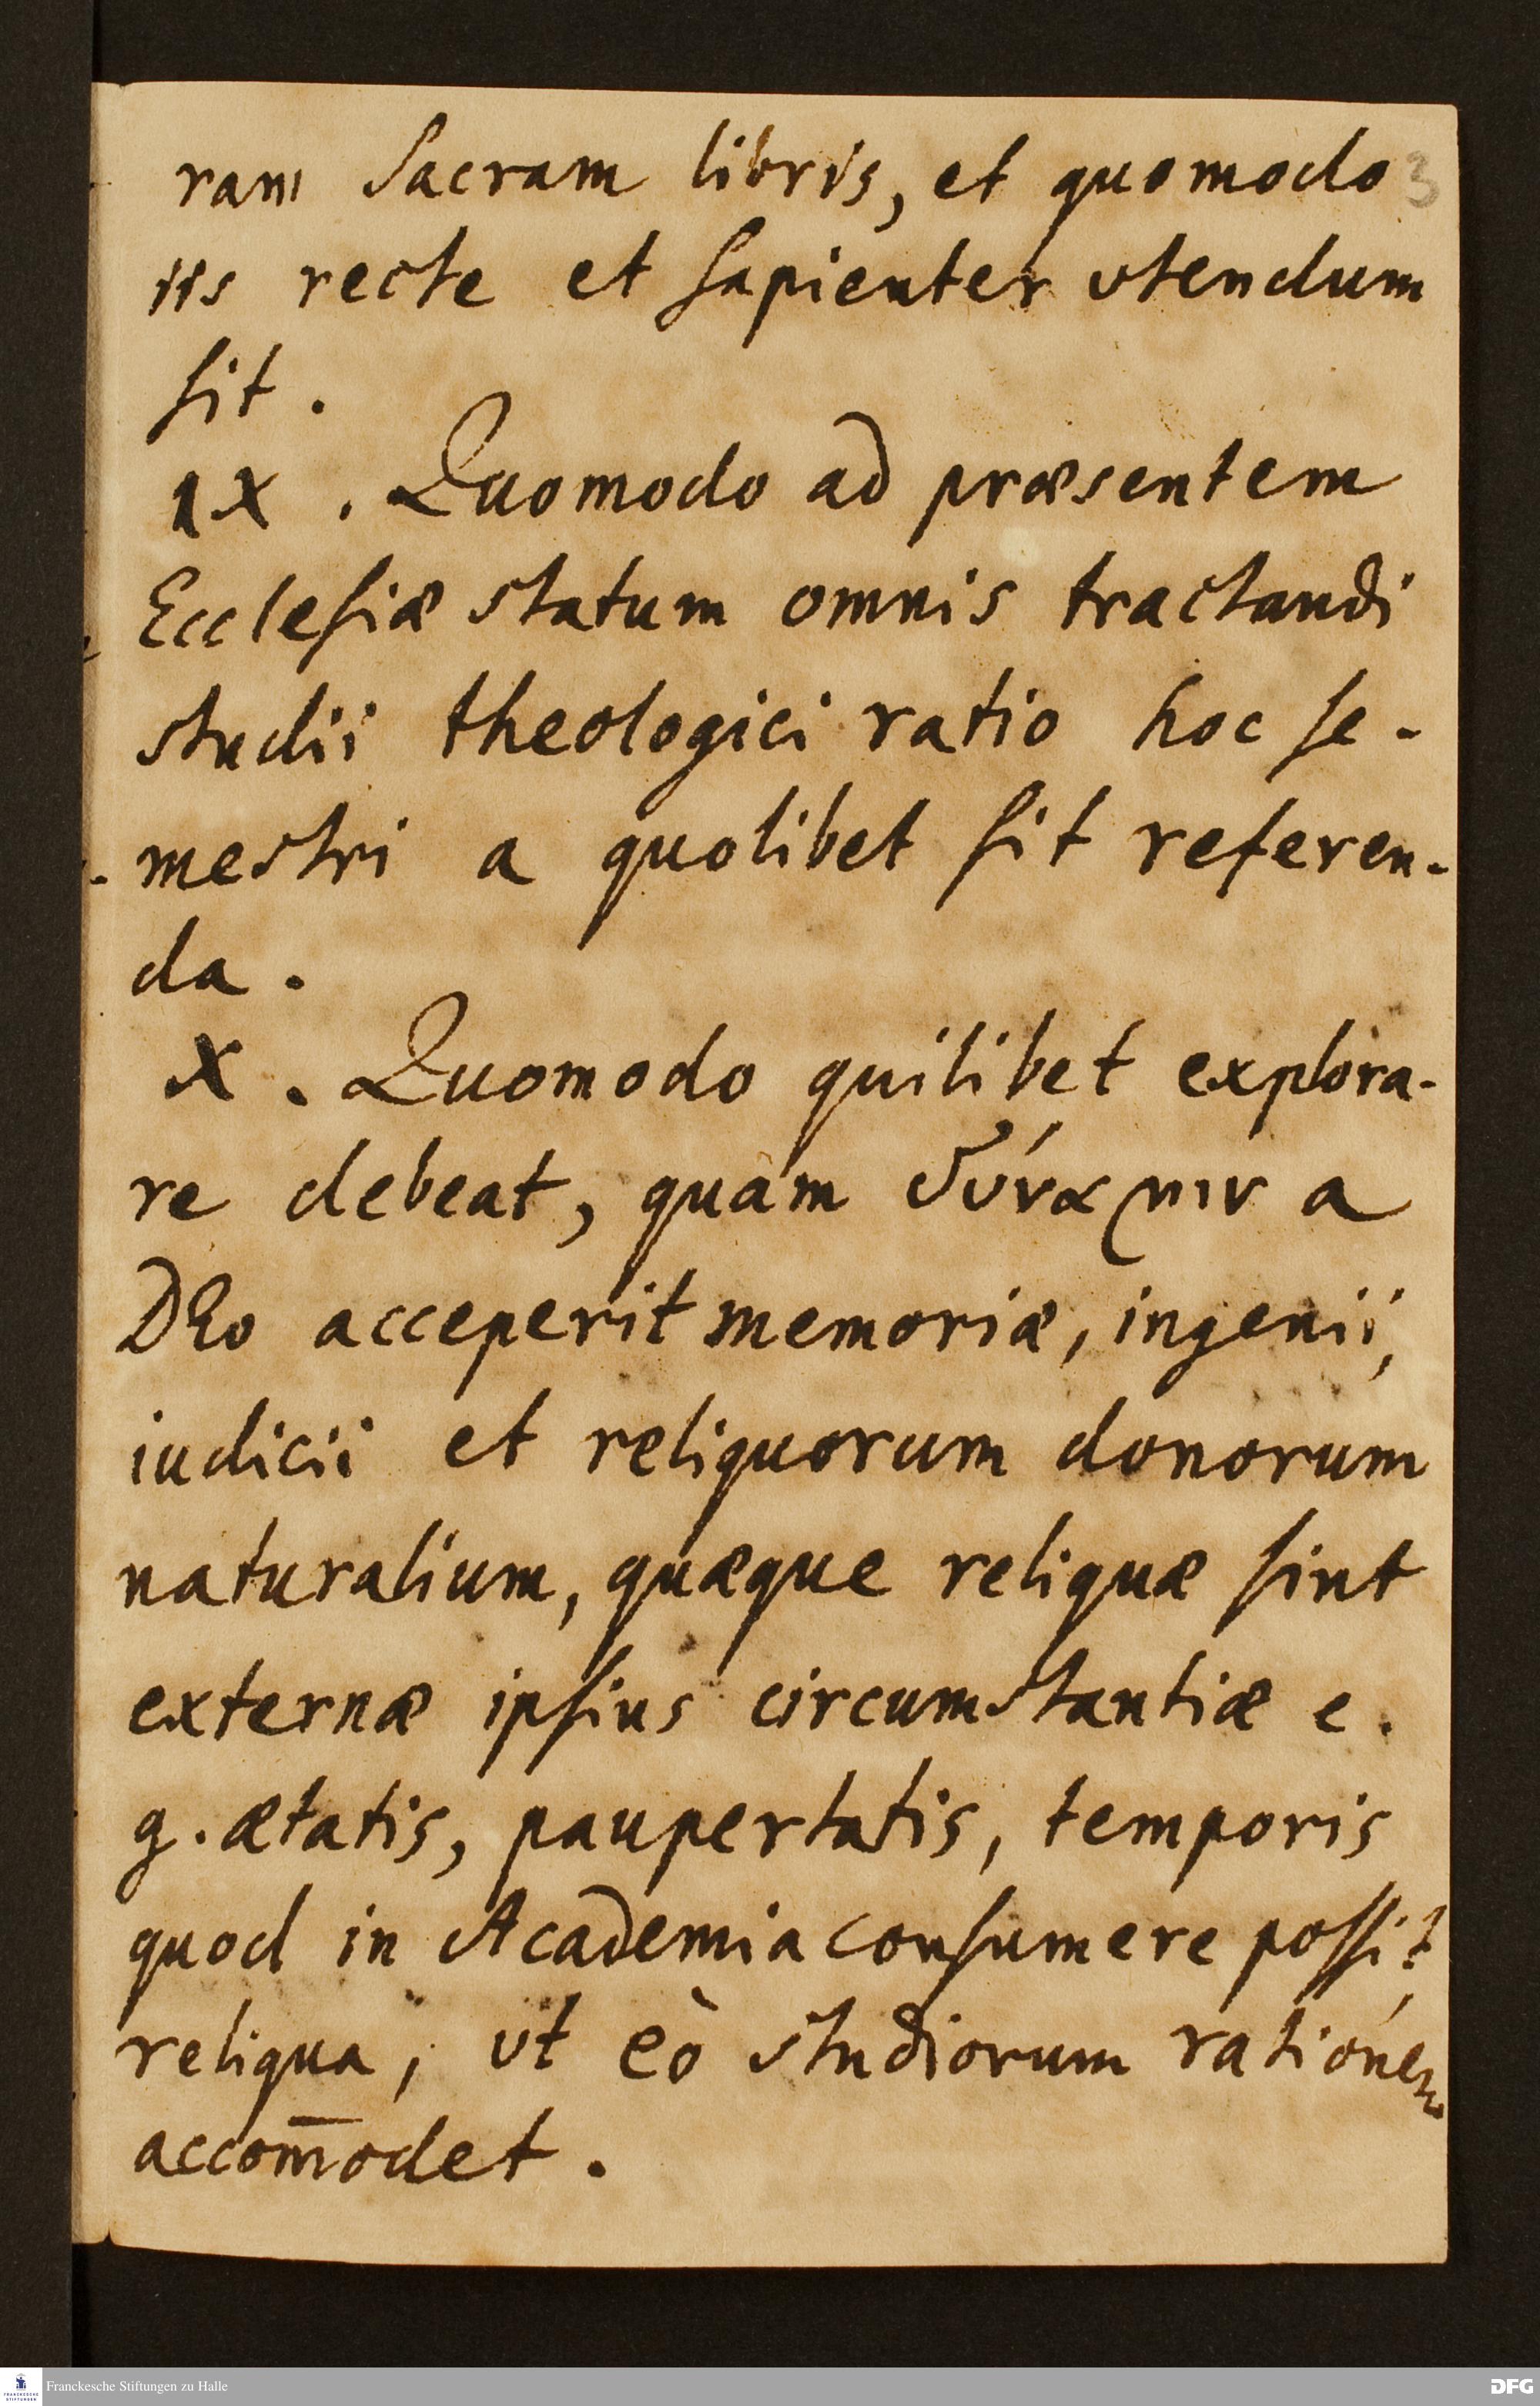 ram Sacram libris, et quomodo 3
iis recte et sapienter vtendum
sit.
IX. Quomodo ad præsentem
Ecclesiæ statum omnis tractandi
studii theologici ratio hoc se-
mestri a quolibet sit referen-
da.
X. Quomodo quilibet explora-
re debeat, quam δύναμιν a
DEo acceperit memoriæ, ingenii,
iudicii et reliquorum donorum
naturalium, quæque reliquæ sint
externæ ipsius circumstantiæ e.
g. ætatis, paupertatis, temporis
quod in Academia consumere possit,
reliqua, vt eò studiorum rationem
accom̄odet.
Franckesche Stiftungen zu Halle
DFG